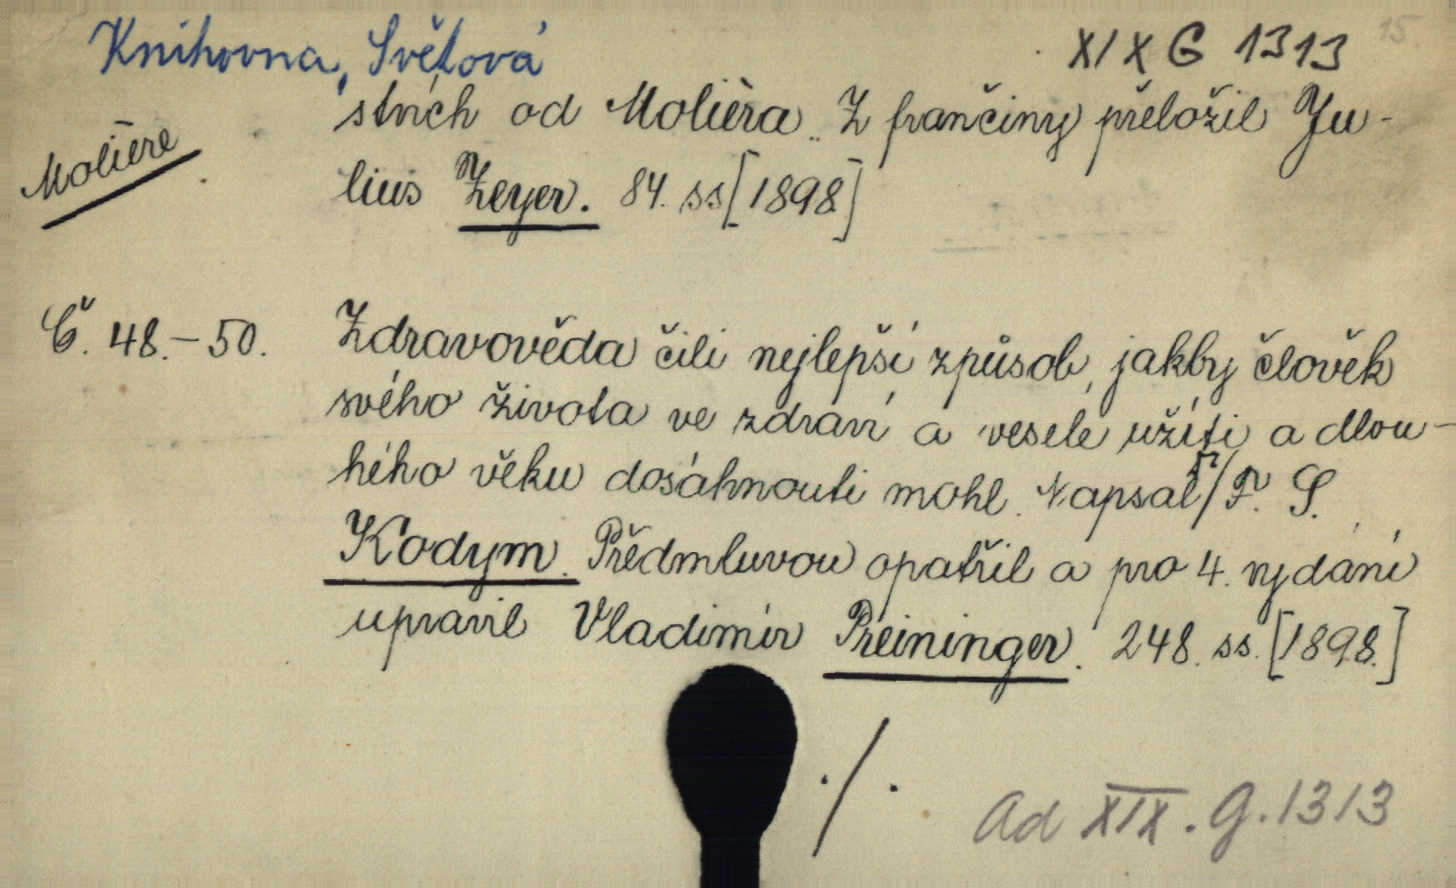 Knihovna, Světová
XIX G 1313
15.
strích od Molièra. Z frančiny přeložil Ju-
Molière
lius Zeyer. 84. ss [1898]
Č. 48.-50. Zdravověda čili nejlepší způsob, jakby člověk
svého života ve zdraví a vesele užíti a dlou-
hého věku dosáhnouti mohl. Napsal F. S.
Kodym. Předmluvou opatřil a pro 4. vydání
upravil Vladimír Preininger. 248. ss. [1898.]
./.
Ad XIX. G. 1313